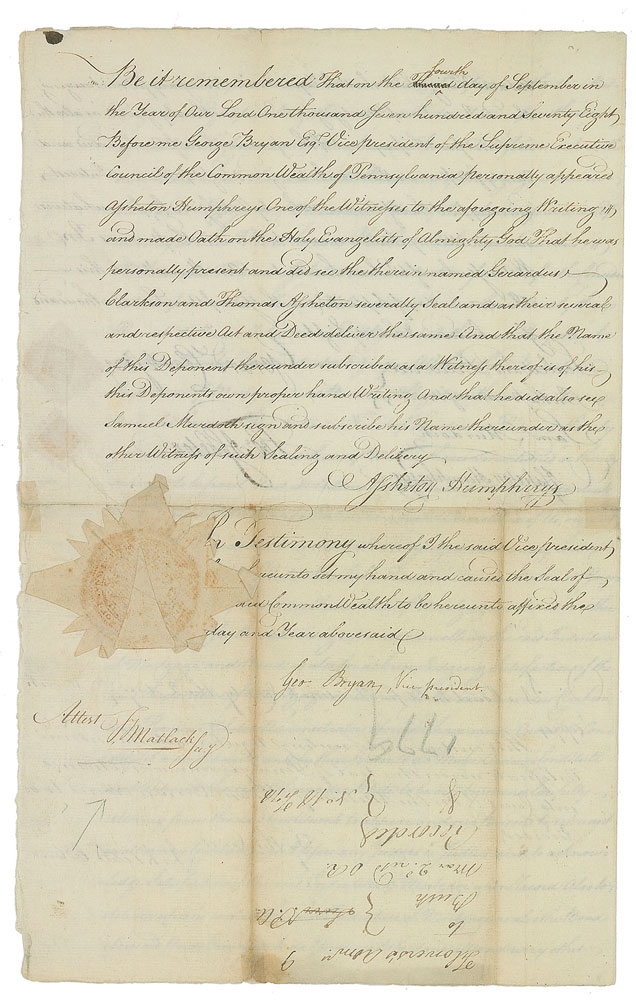 Be it remembered That on the Third fourth day of September in
the Year of Our Lord One thousand Seven hundred and Seventy Eight
Before me George Bryan Esqr. Vice president of the Supreme Executive
Council of the Common Wealth of Pennsylvania personally appeared
Assheton Humphreys One of the Witnesses to the aforegoing Writing
and made Oath on the Holy Evangelists of Almighty God That he was
personally present and did see the therein named Gerardus
Clarkson and Thomas Assheton severally Seal and as their several
and respective Act and Deed deliver the same And that the Name
of this Deponent thereunder subscribed as a Witness thereof is of his
this Deponents own proper hand Writing And that he did also see
Samuel Murdoch sign and subscribe his Name thereunder as the
other Witness of such Sealing and Delivery
Assheton Humphreys
In Testimony whereof I the said Vice president
hereunto set my hand and caused the Seal of
said Common Wealth to be hereunto affixed the
day and Year abovesaid
Geo Bryan, Vice president.
Attest
T Matlack Secy
1779
to
Bush
Recorded